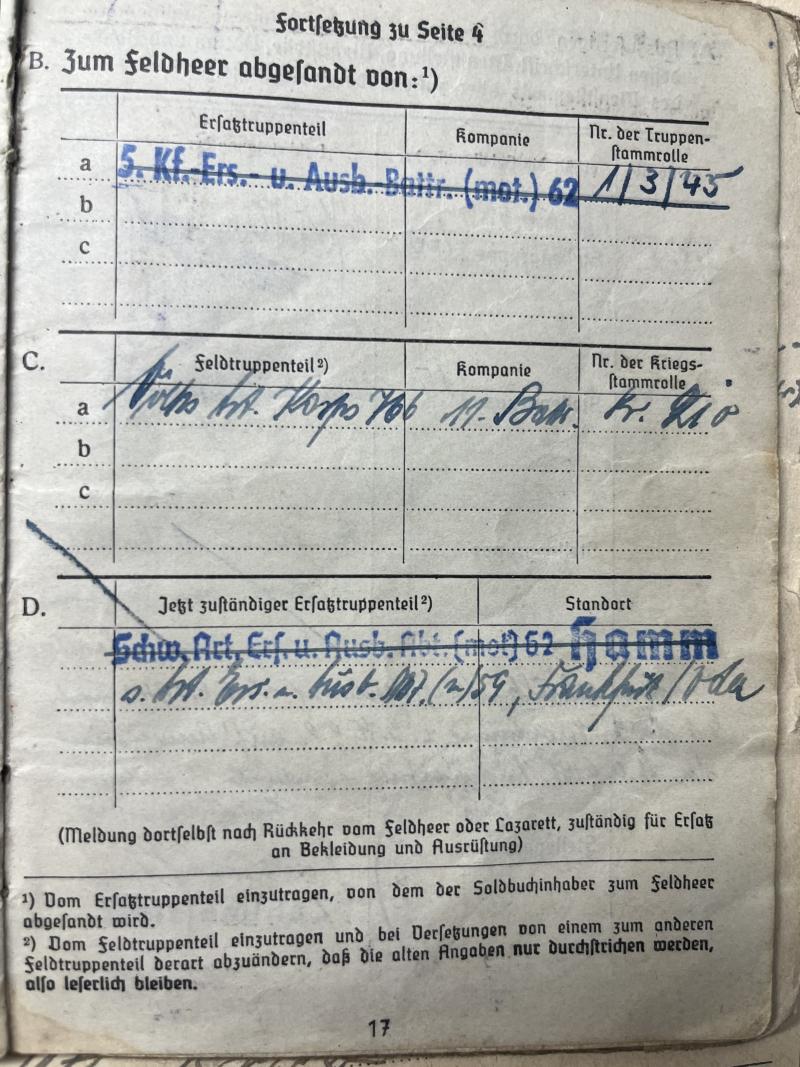 Fortsetzung zu Seite 4
B. Zum Feldheer abgesandt von:¹)
Ersatztruppenteil Kompanie Nr. der Truppen-
stammrolle
a 5. Kf.-Ers.- u. Ausb.-Battr. (mot.) 62 1/3/45
b
c
C. Feldtruppenteil²) Kompanie Nr. der Kriegs-
stammrolle
a Volks Art. Korps 766 11. Battr. Kr.
b
c
D. Jetzt zuständiger Ersatztruppenteil²) Standort
Schw. Art. Ers. u. Ausb. Abt. (mot) 62 Hamm
s. Art. Ers. u. Ausb. Abt. (m) 59, Frankfurt/Oder
(Meldung dortselbst nach Rückkehr vom Feldheer oder Lazarett, zuständig für Ersatz
an Bekleidung und Ausrüstung)
¹) Vom Ersatztruppenteil einzutragen, von dem der Soldbuchinhaber zum Feldheer
abgesandt wird.
²) Vom Feldtruppenteil einzutragen und bei Versetzungen von einem zum anderen
Feldtruppenteil derart abzuändern, daß die alten Angaben nur durchstrichen werden,
also leserlich bleiben.
17